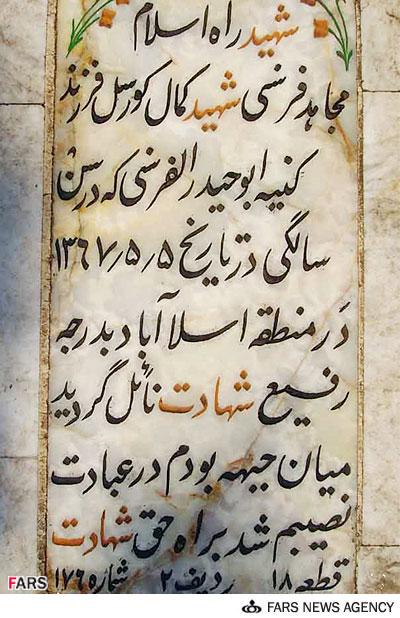 شهید راه اسلام
مجاهد فرنسی شهید کمال کورسل فرزند
کنیه ابوحیدر الفرنسی که در سن
سالگی در تاریخ ۱۳۶۷٫۵٫۵
در منطقه اسلام آباد بدرجه
رفیع شهادت نائل گردید
میان جبهه بودم در عبادت
نصیبم شد براه حق شهادت
قطعه ۱۸ ردیف ۲ شماره ۱۷۶
FARS
FARS NEWS AGENCY